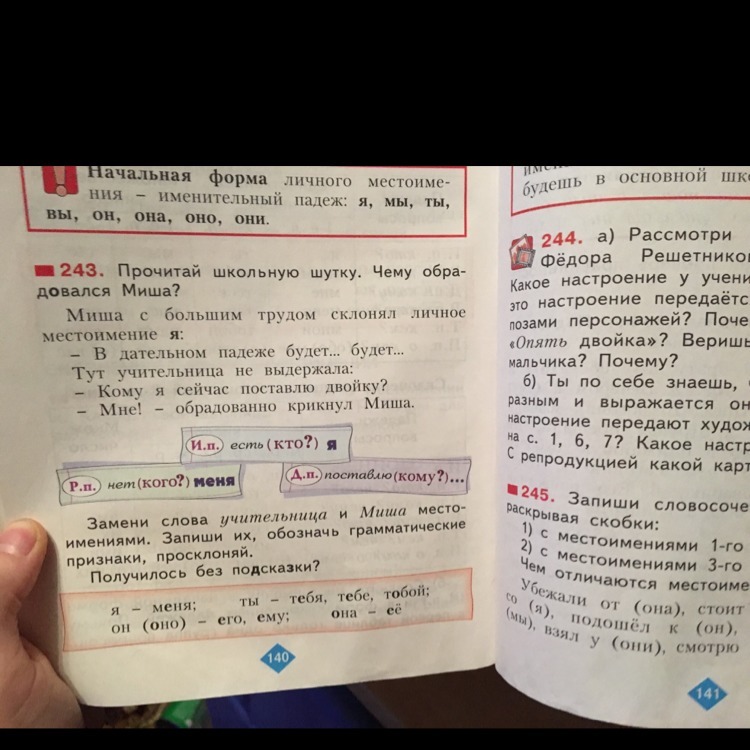 Начальная форма личного местоиме-
ния – именительный падеж: я, мы, ты,
вы, он, она, оно, они.
243. Прочитай школьную шутку. Чему обра-
довался Миша?
Миша с большим трудом склонял личное
местоимение я:
– В дательном падеже будет... будет...
Тут учительница не выдержала:
– Кому я сейчас поставлю двойку?
– Мне! – обрадованно крикнул Миша.
И.п. есть (кто?) я
Р.п. нет (кого?) меня
Д.п. поставлю (кому?)...
Замени слова учительница и Миша место-
имениями. Запиши их, обозначь грамматические
признаки, просклоняй.
Получилось без подсказки?
я – меня; ты – тебя, тебе, тобой;
он (оно) – его, ему; она – её
140
будешь в основной шко
244. а) Рассмотри
Фёдора Решетников
Какое настроение у учени
это настроение передаётс
позами персонажей? Поче
«Опять двойка»? Веришь
мальчика? Почему?
б) Ты по себе знаешь,
разным и выражается он
настроение передают худож
на с. 1, 6, 7? Какое настр
С репродукцией какой карт
245. Запиши словосоче
раскрывая скобки:
1) с местоимениями 1-го
2) с местоимениями 3-го
Чем отличаются местоиме
Убежали от (она), стоит
со (я), подошёл к (он),
(мы), взял у (они), смотрю
141